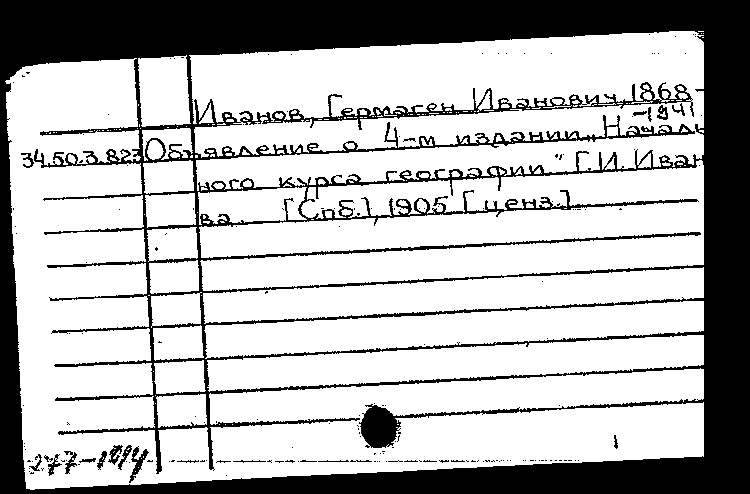 Иванов, Гермаген Иванович, 1868-
-1941
34.50.3.823 Объявление о 4-м издании „Началь
ного курса географии" Г.И. Ивано
ва. [Спб.], 1905 [ценз.]
277-1914
1